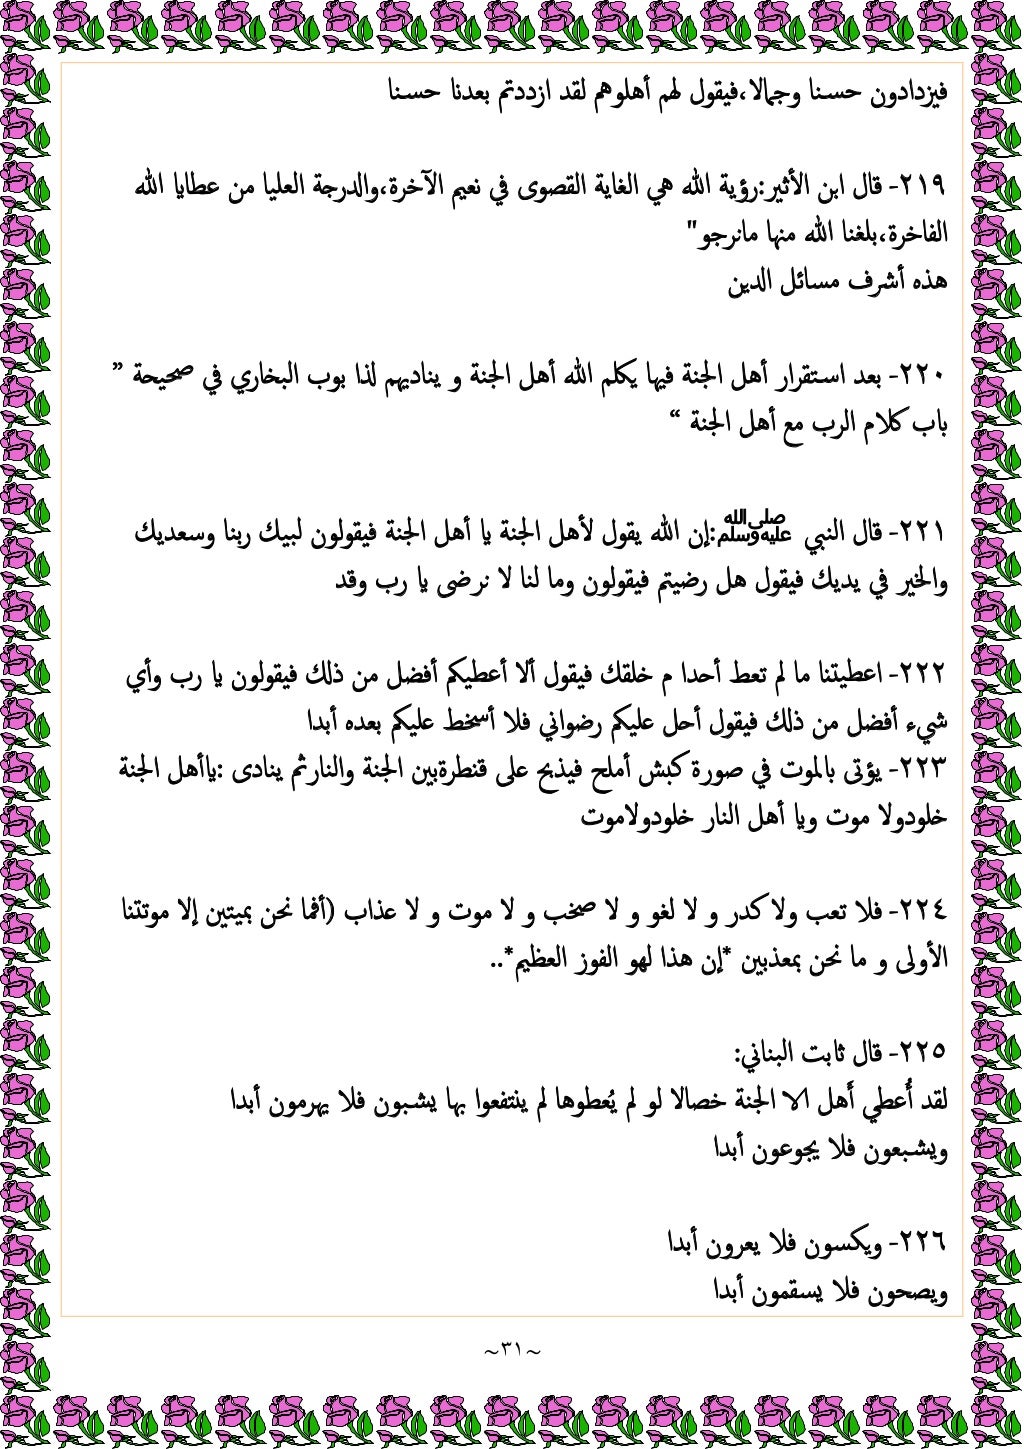 فيزدادون حسنا وجمالا،فيقول لهم أهلوهم لقد ازددتم بعدنا حسنا
٢١٩- قال ابن الأثير:رؤية الله هي الغاية القصوى في نعيم الآخرة،والدرجة العليا من عطايا الله
الفاخرة،بلغنا الله منها مانرجو"
هذه أشرف مسائل الدين
٢٢٠- بعد استقرار أهل الجنة فيها يكلم الله أهل الجنة و يناديهم لذا بوب البخاري في صحيحة ”
باب كلام الرب مع أهل الجنة “
٢٢١- قال النبي ﷺ:إن الله يقول لأهل الجنة يا أهل الجنة فيقولون لبيك ربنا وسعديك
والخير في يديك فيقول هل رضيتم فيقولون وما لنا لا نرضى يا رب وقد
٢٢٢- اعطيتنا ما لم تعط أحدا م خلقك فيقول ألا أعطيكم أفضل من ذلك فيقولون يا رب وأي
شيء أفضل من ذلك فيقول أحل عليكم رضواني فلا أسخط عليكم بعده أبدا
٢٢٣- يؤتى بالموت في صورة كبش أملح فيذبح على قنطرةبين الجنة والنارثم ينادى :ياأهل الجنة
خلودولا موت ويا أهل النار خلودولاموت
٢٢٤- فلا تعب ولا كدر و لا لغو و لا صخب و لا موت و لا عذاب (أفما نحن بميتين إلا موتتنا
الأولى و ما نحن بمعذبين *إن هذا لهو الفوز العظيم*..
٢٢٥- قال ثابت البناني:
لقد أُعطي أَهل الا الجنة خصالا لو لم يُعطوها لم ينتفعوا بها يشبون فلا يهرمون أبدا
ويشبعون فلا يجوعون أبدا
٢٢٦- ويكسون فلا يعرون أبدا
ويصحون فلا يسقمون أبدا
~٣١~